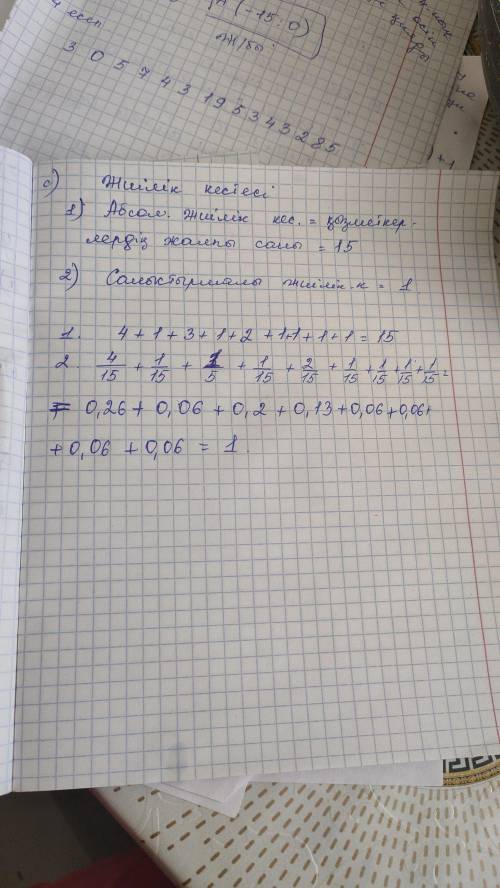 4 есеп
А (-15; 0)
3 0 5 7 4 3 19 5 3 4 3 2 8 5
с) Жиілік кестесі
1) Абсол. жиілік кес. = қозметкер-
лердің жалпы саны = 15
2) Салыстырмалы жиілік.к = 1
1. 4 + 1 + 3 + 1 + 2 + 1+1 + 1 + 1 = 15
2. 4/15 + 1/15 + 1/5 + 1/15 + 2/15 + 1/15 + 1/15 + 1/15 + 1/15 =
= 0,26 + 0,06 + 0,2 + 0,13 + 0,06 + 0,06 +
+ 0,06 + 0,06 = 1